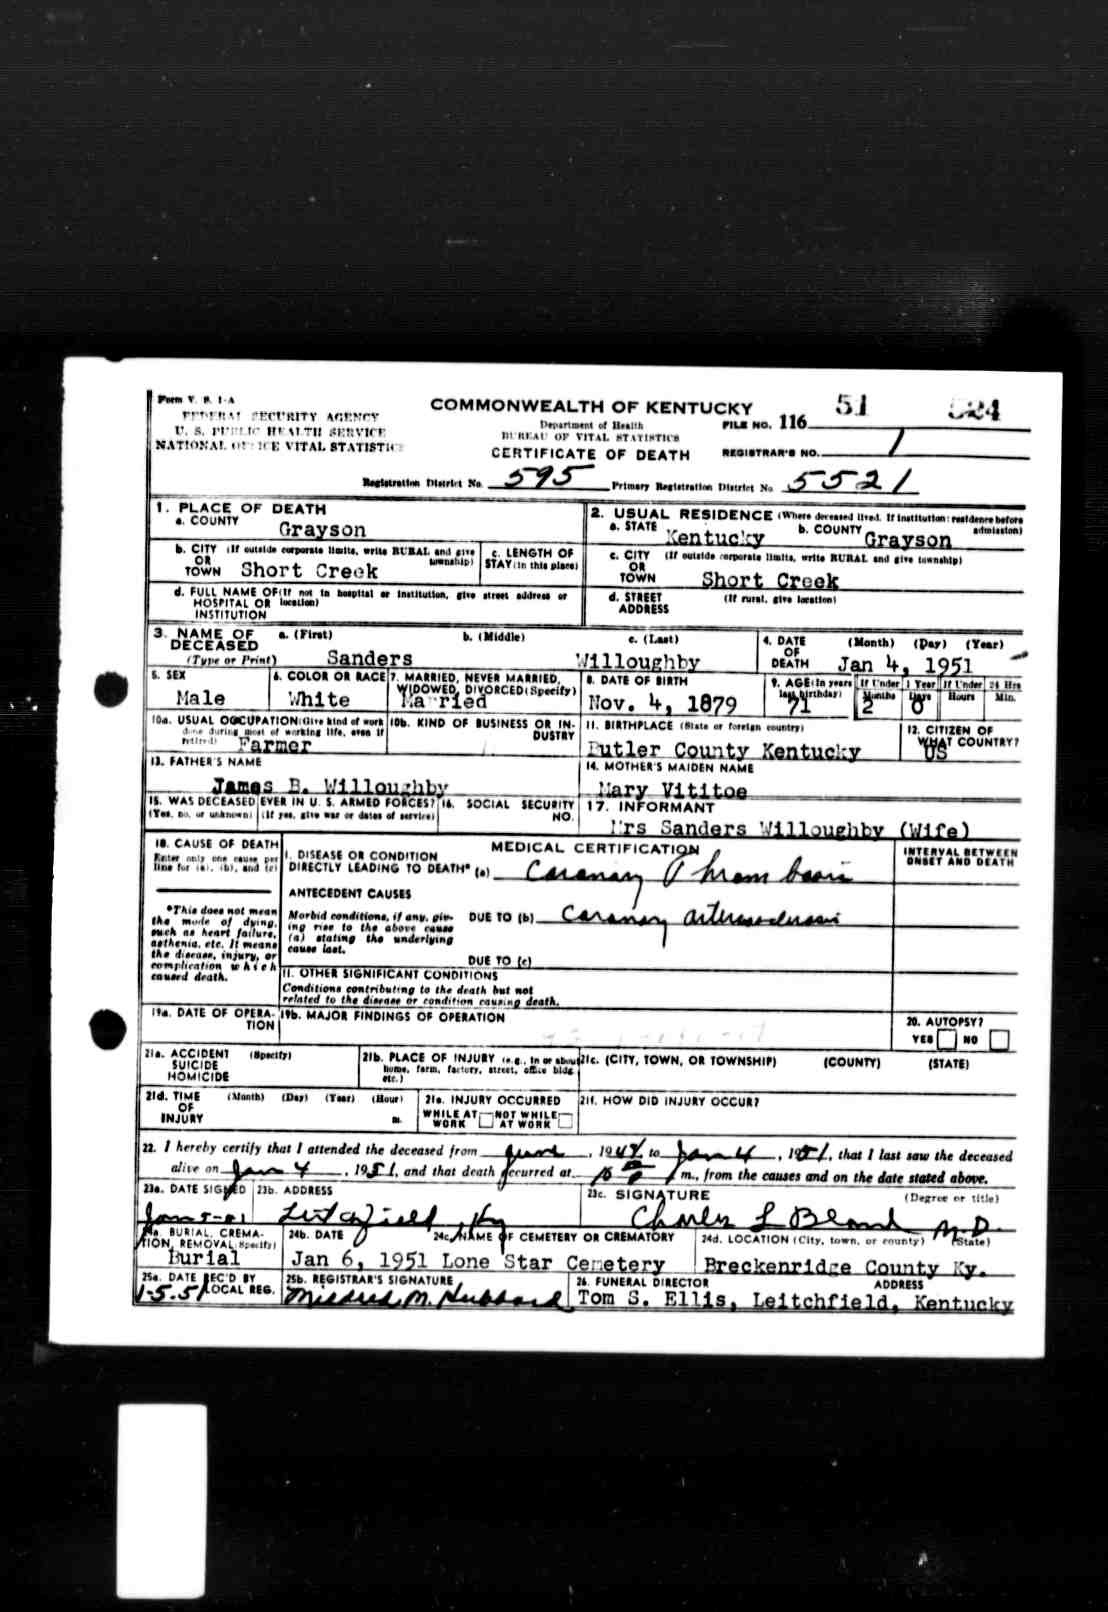 Form V. S. 1-A
FEDERAL SECURITY AGENCY
U. S. PUBLIC HEALTH SERVICE
NATIONAL OFFICE VITAL STATISTICS
COMMONWEALTH OF KENTUCKY
Department of Health
BUREAU OF VITAL STATISTICS
CERTIFICATE OF DEATH
FILE NO. 116 51 524
REGISTRAR'S NO. 1
Registration District No. 595 Primary Registration District No 5521
1. PLACE OF DEATH
a. COUNTY Grayson
2. USUAL RESIDENCE (Where deceased lived. If institution: residence before admission)
a. STATE Kentucky b. COUNTY Grayson
b. CITY (If outside corporate limits, write RURAL and give township)
OR
TOWN Short Creek
c. LENGTH OF
STAY (in this place)
c. CITY (If outside corporate limits, write RURAL and give township)
OR
TOWN Short Creek
d. FULL NAME OF (If not in hospital or institution, give street address or location)
HOSPITAL OR
INSTITUTION
d. STREET (If rural, give location)
ADDRESS
3. NAME OF DECEASED
(Type or Print)
a. (First) b. (Middle) c. (Last)
Sanders Willoughby
4. DATE OF DEATH (Month) (Day) (Year)
Jan 4, 1951
5. SEX
Male
6. COLOR OR RACE
White
7. MARRIED, NEVER MARRIED,
WIDOWED, DIVORCED (Specify)
Married
8. DATE OF BIRTH
Nov. 4, 1879
9. AGE (In years last birthday)
71
If Under 1 Year
Months Days
2 0
If Under 24 Hrs
Hours Min.
10a. USUAL OCCUPATION (Give kind of work done during most of working life, even if retired)
Farmer
10b. KIND OF BUSINESS OR INDUSTRY
11. BIRTHPLACE (State or foreign country)
Butler County Kentucky
12. CITIZEN OF WHAT COUNTRY?
US
13. FATHER'S NAME
James B. Willoughby
14. MOTHER'S MAIDEN NAME
Mary Vititoe
15. WAS DECEASED EVER IN U. S. ARMED FORCES?
(Yes, no, or unknown) (If yes, give war or dates of service)
16. SOCIAL SECURITY NO.
17. INFORMANT
Mrs Sanders Willoughby (Wife)
18. CAUSE OF DEATH
Enter only one cause per line for (a), (b), and (c)
*This does not mean the mode of dying, such as heart failure, asthenia, etc. It means the disease, injury, or complication which caused death.
MEDICAL CERTIFICATION
INTERVAL BETWEEN ONSET AND DEATH
I. DISEASE OR CONDITION
DIRECTLY LEADING TO DEATH* (a) Coronary Thrombosis
ANTECEDENT CAUSES
Morbid conditions, if any, giving rise to the above cause (a) stating the underlying cause last.
DUE TO (b) Coronary arteriosclerosis
DUE TO (c)
II. OTHER SIGNIFICANT CONDITIONS
Conditions contributing to the death but not
related to the disease or condition causing death.
19a. DATE OF OPERATION
19b. MAJOR FINDINGS OF OPERATION
20. AUTOPSY?
YES NO
21a. ACCIDENT (Specify)
SUICIDE
HOMICIDE
21b. PLACE OF INJURY (e.g., in or about home, farm, factory, street, office bldg. etc.)
21c. (CITY, TOWN, OR TOWNSHIP) (COUNTY) (STATE)
21d. TIME OF INJURY (Month) (Day) (Year) (Hour) m.
21e. INJURY OCCURRED
WHILE AT WORK NOT WHILE AT WORK
21f. HOW DID INJURY OCCUR?
22. I hereby certify that I attended the deceased from June, 1947, to Jan 4, 1951, that I last saw the deceased
alive on Jan 4, 1951, and that death occurred at m., from the causes and on the date stated above.
23a. DATE SIGNED
Jan 5-51
23b. ADDRESS
Leitchfield, Ky
23c. SIGNATURE (Degree or title)
Charles L Bland M.D.
24a. BURIAL, CREMATION, REMOVAL (Specify)
Burial
24b. DATE
Jan 6, 1951
24c. NAME OF CEMETERY OR CREMATORY
Lone Star Cemetery
24d. LOCATION (City, town, or county) (State)
Breckenridge County Ky.
25a. DATE REC'D BY LOCAL REG.
1-5-51
25b. REGISTRAR'S SIGNATURE
Mildred M. Hubbard
26. FUNERAL DIRECTOR ADDRESS
Tom S. Ellis, Leitchfield, Kentucky